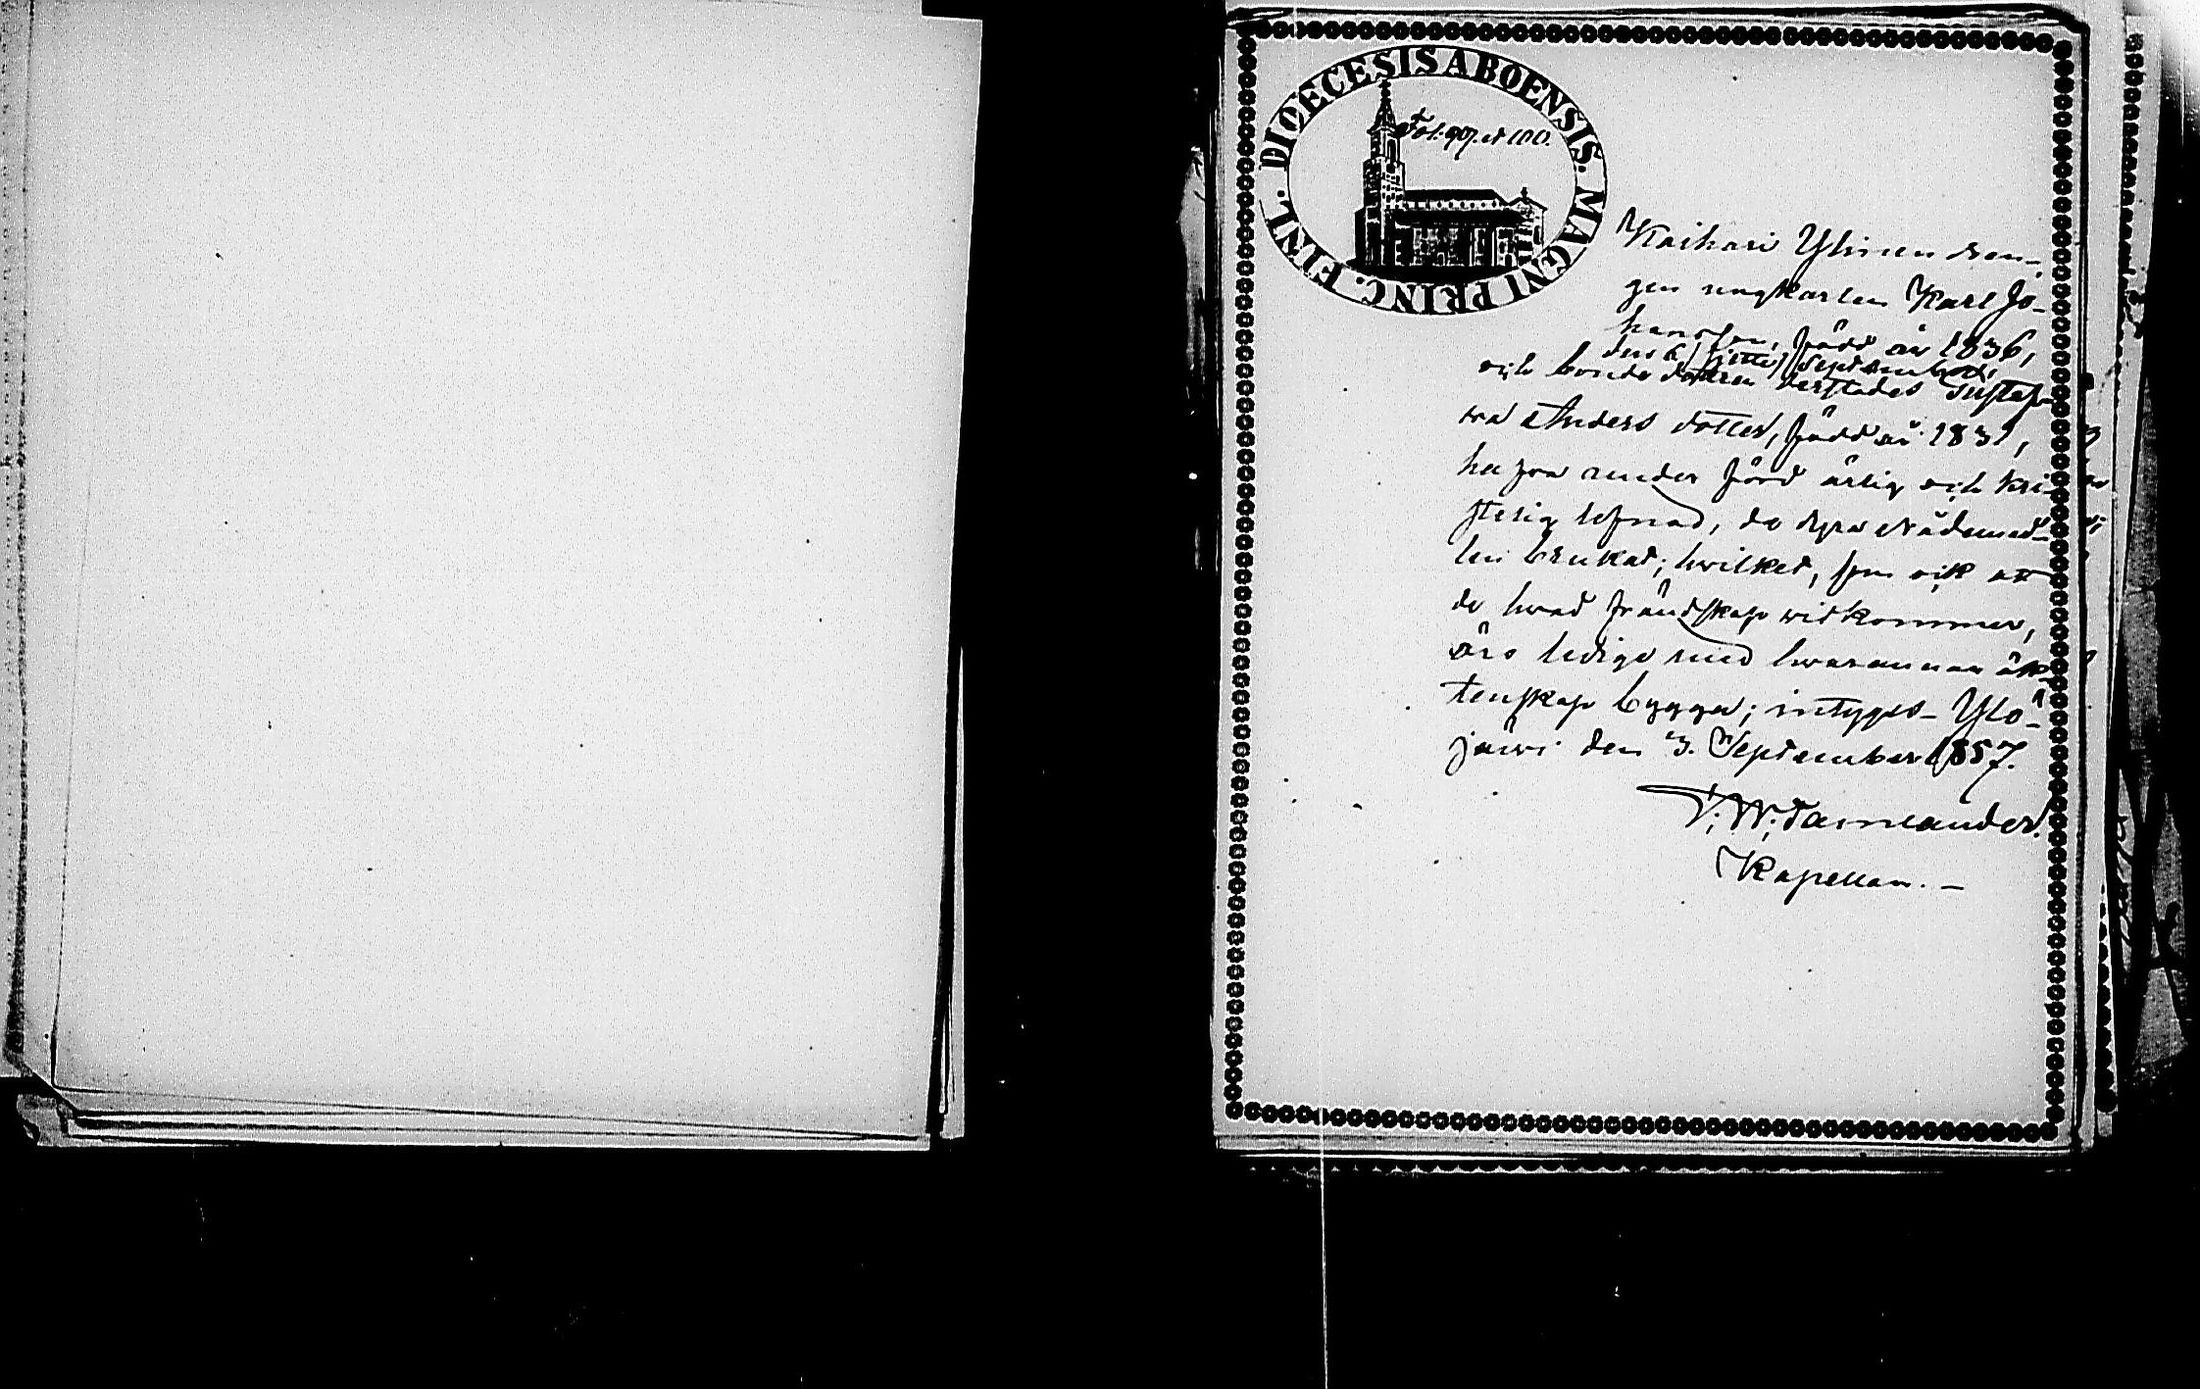 DIOECESIS ABOENSIS. MAGNI PRINC. FINL.
Fol. 97. et 100.
Kaihari Ylinen dren-
gen ungkarlen Karl Jo-
hansson, född år 1836,
den 6 (sjette) September,
och bonde dottren derstädes Gustaf-
wa Anders dotter, född år 1831,
hafwa under förd ärlig och kri-
stelig lefnad, de dyra Nådemed-
len brukat; hwilket, som ock att
de hwad frändskap widkommer,
äro lediga med hwarannan äk-
tenskap bygga; intygas - Ylö-
järwi den 3. September 1857.
F. W. Tammander.
Kapellan. -